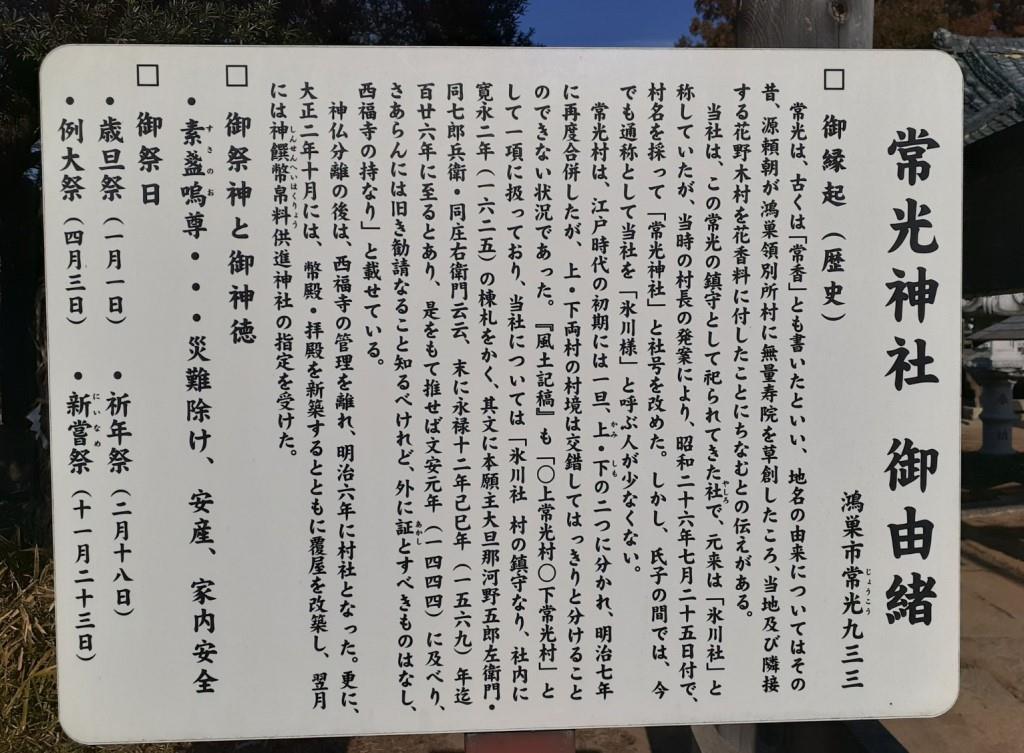 常光神社 御由緒
鴻巣市常光九三三
□ 御縁起（歴史）
常光は、古くは「常香」とも書いたといい、地名の由来についてはその
昔、源頼朝が鴻巣領別所村に無量寿院を草創したころ、当地及び隣接
する花野木村を花香料に付したことにちなむとの伝えがある。
当社は、この常光の鎮守として祀られてきた社で、元来は「氷川社」と
称していたが、当時の村長の発案により、昭和二十六年七月二十五日付で、
村名を採って「常光神社」と社号を改めた。しかし、氏子の間では、今
でも通称として当社を「氷川様」と呼ぶ人が少なくない。
常光村は、江戸時代の初期には一旦、上・下の二つに分かれ、明治七年
に再度合併したが、上・下両村の村境は交錯してはっきりと分けること
のできない状況であった。『風土記稿』も「〇上常光村〇下常光村」と
して一項に扱っており、当社については「氷川社 村の鎮守なり、社内に
寛永二年（一六二五）の棟札をかく、其文に本願主大旦那河野五郎左衛門・
同七郎兵衛・同庄右衛門云云、末に永禄十二年己巳年（一五六九）年迄
百廿六年に至るとあり、是をもて推せば文安元年（一四四四）に及べり、
さあらんには旧き勧請なること知るべけれど、外に証とすべきものはなし、
西福寺の持なり」と載せている。
神仏分離の後は、西福寺の管理を離れ、明治六年に村社となった。更に、
大正二年十月には、幣殿・拝殿を新築するとともに覆屋を改築し、翌月
には神饌幣帛料供進神社の指定を受けた。
□ 御祭神と御神徳
・素盞嗚尊・・・災難除け、安産、家内安全
□ 御祭日
・歳旦祭（一月一日） ・祈年祭（二月十八日）
・例大祭（四月三日） ・新嘗祭（十一月二十三日）